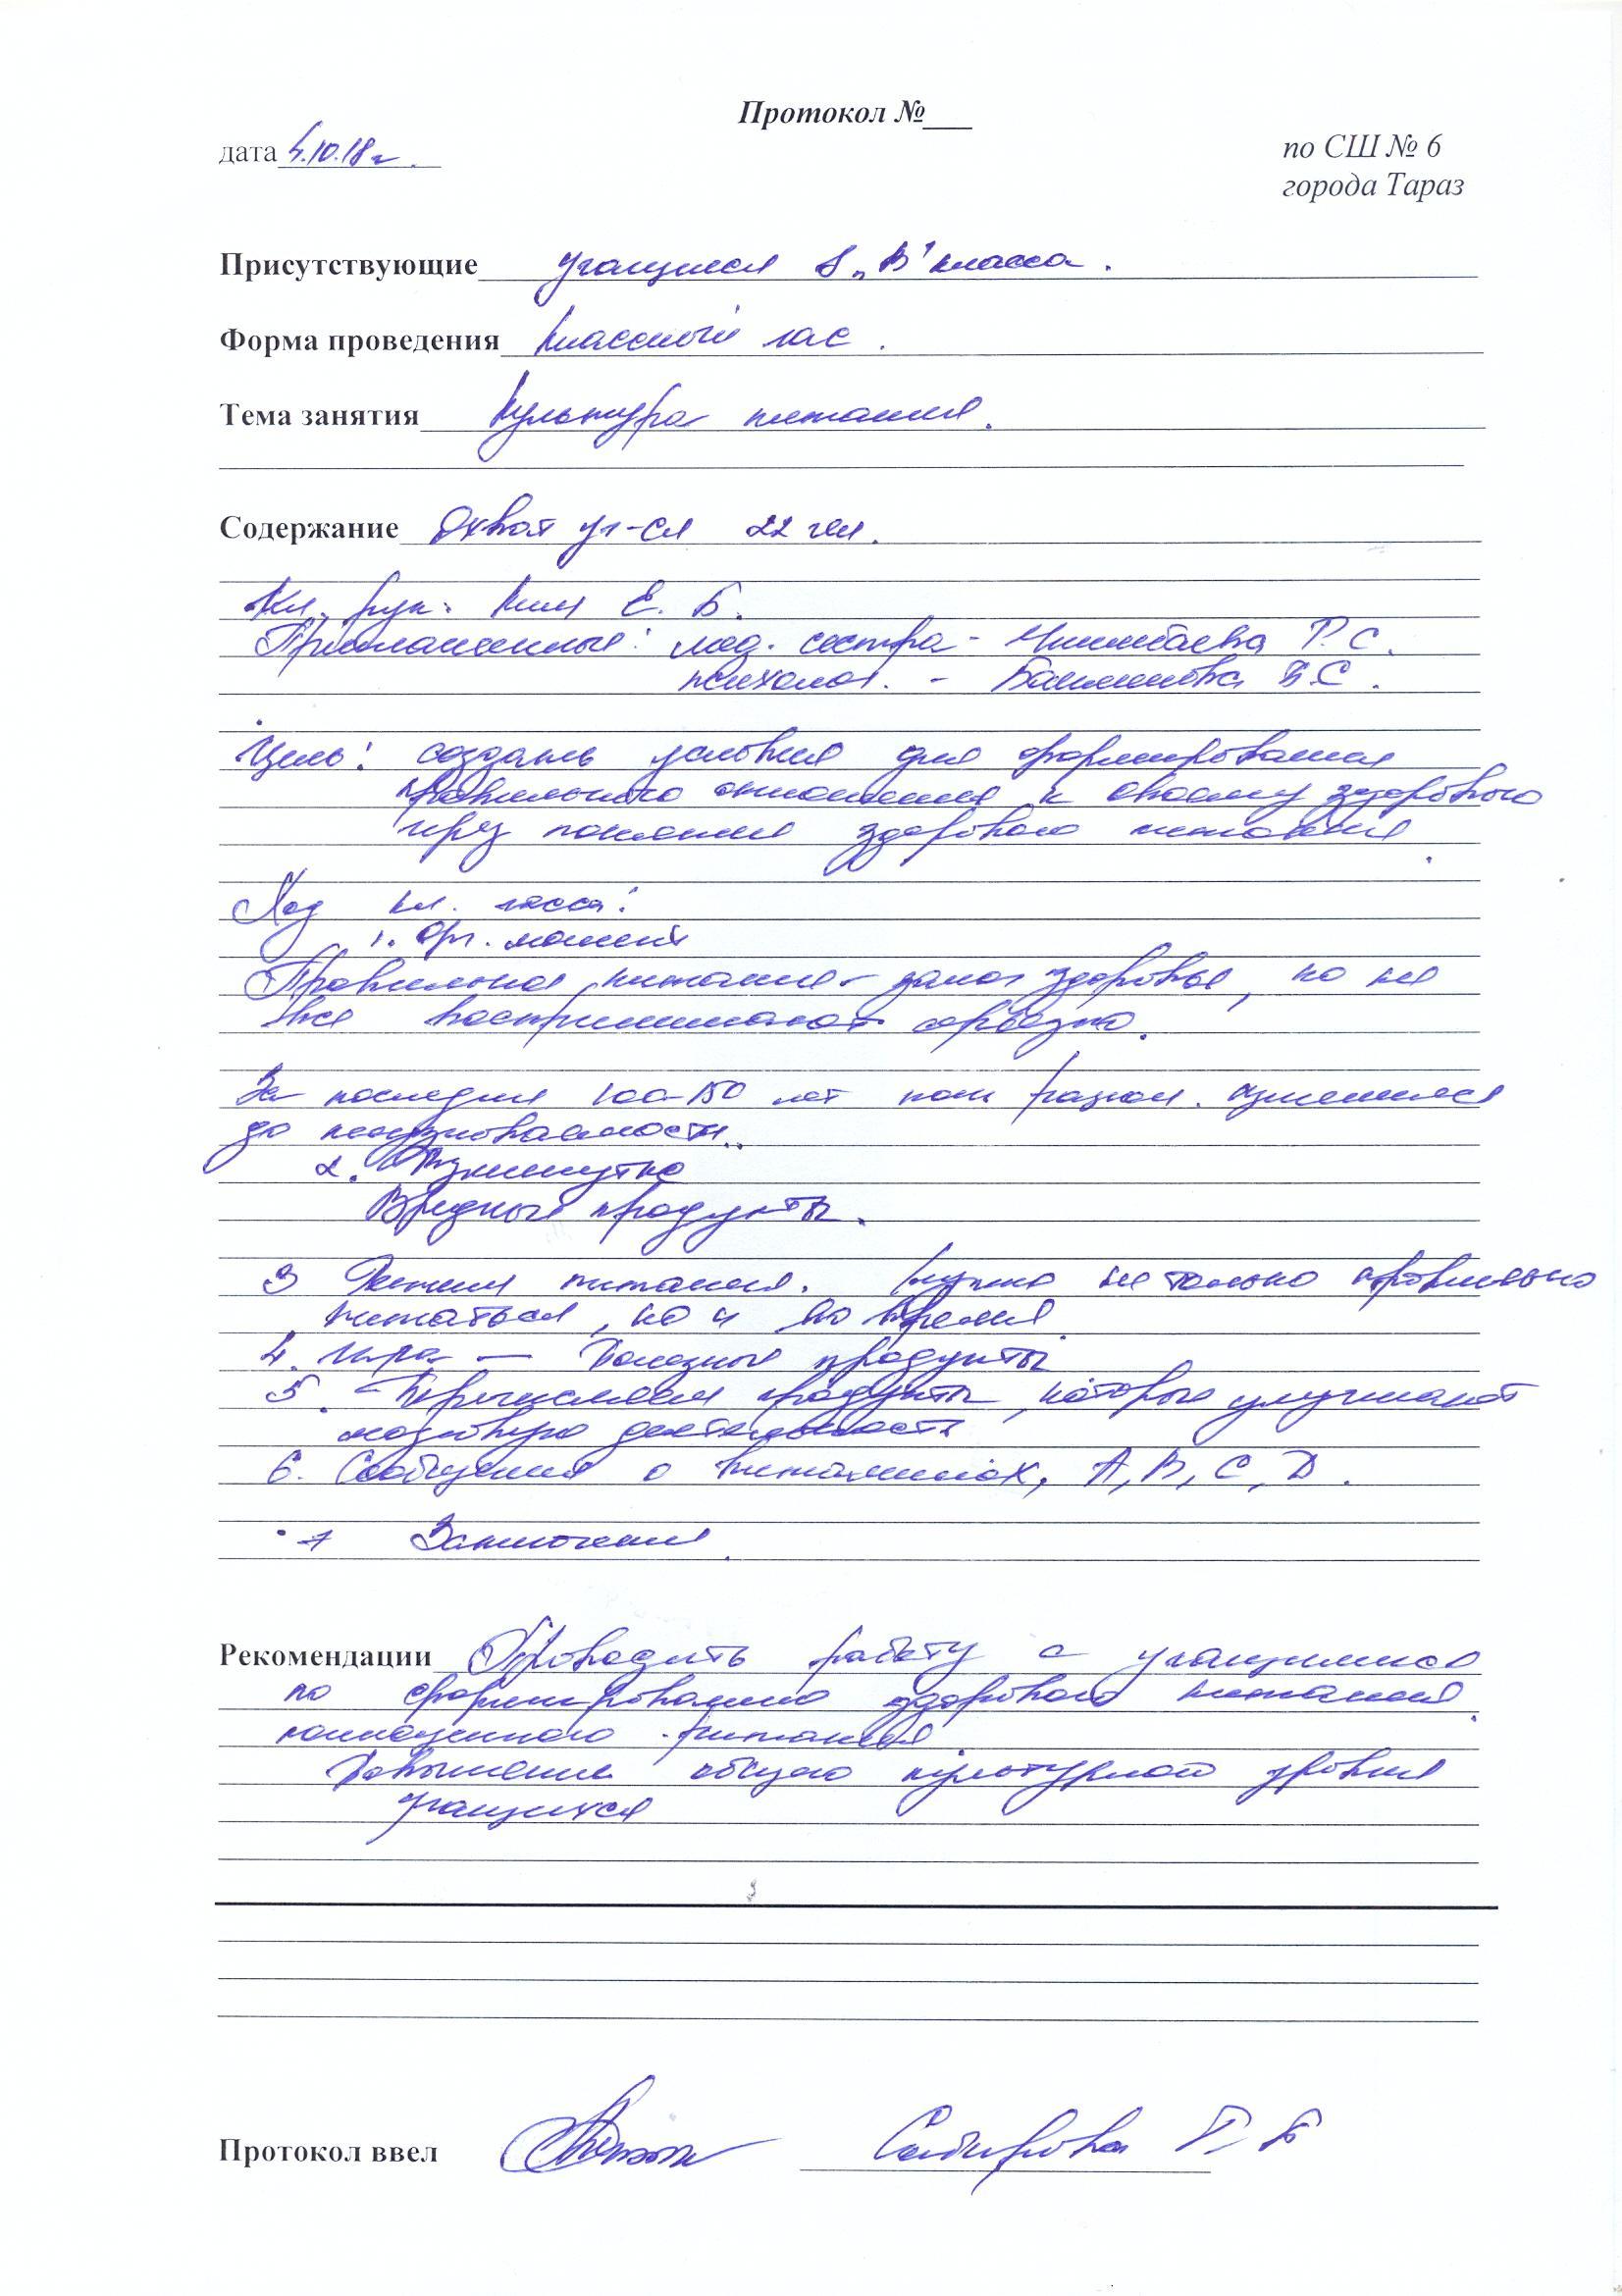 Протокол №___
дата 4.10.18г.
по СШ № 6
города Тараз
Присутствующие учащиеся 8 „В" класса.
Форма проведения Классный час.
Тема занятия Культура питания.
Содержание Охват уч-ся 22 чел.
Кл. рук. Ким Е. Б.
Приглашенные: мед. сестра - Р. С.
психолог. - Б.С.
Цель: создать условия для формирования
правильного отношения к своему здоровью
через понятие здорового питания.
Ход кл. часа:
1. Орг. момент
Правильное питание - залог здоровья, но не
все воспринимают серьезно.
За последние 100-150 лет наш рацион изменился
до неузнаваемости..
2. Физминутка
Вредные продукты.
3 Режим питания. Нужно не только правильно
питаться, но и во время.
4. Игра — Полезные продукты
5. Перечисляем продукты, которые улучшают
мозговую деятельность
6. Сообщения о витаминах, А, В, С, D.
7 Заключение.
Рекомендации Проводить работу с учащимися
по формированию здорового питания.
полноценного питания.
Повышение общего культурного уровня
учащихся
Протокол ввел Сабирова Г. Б